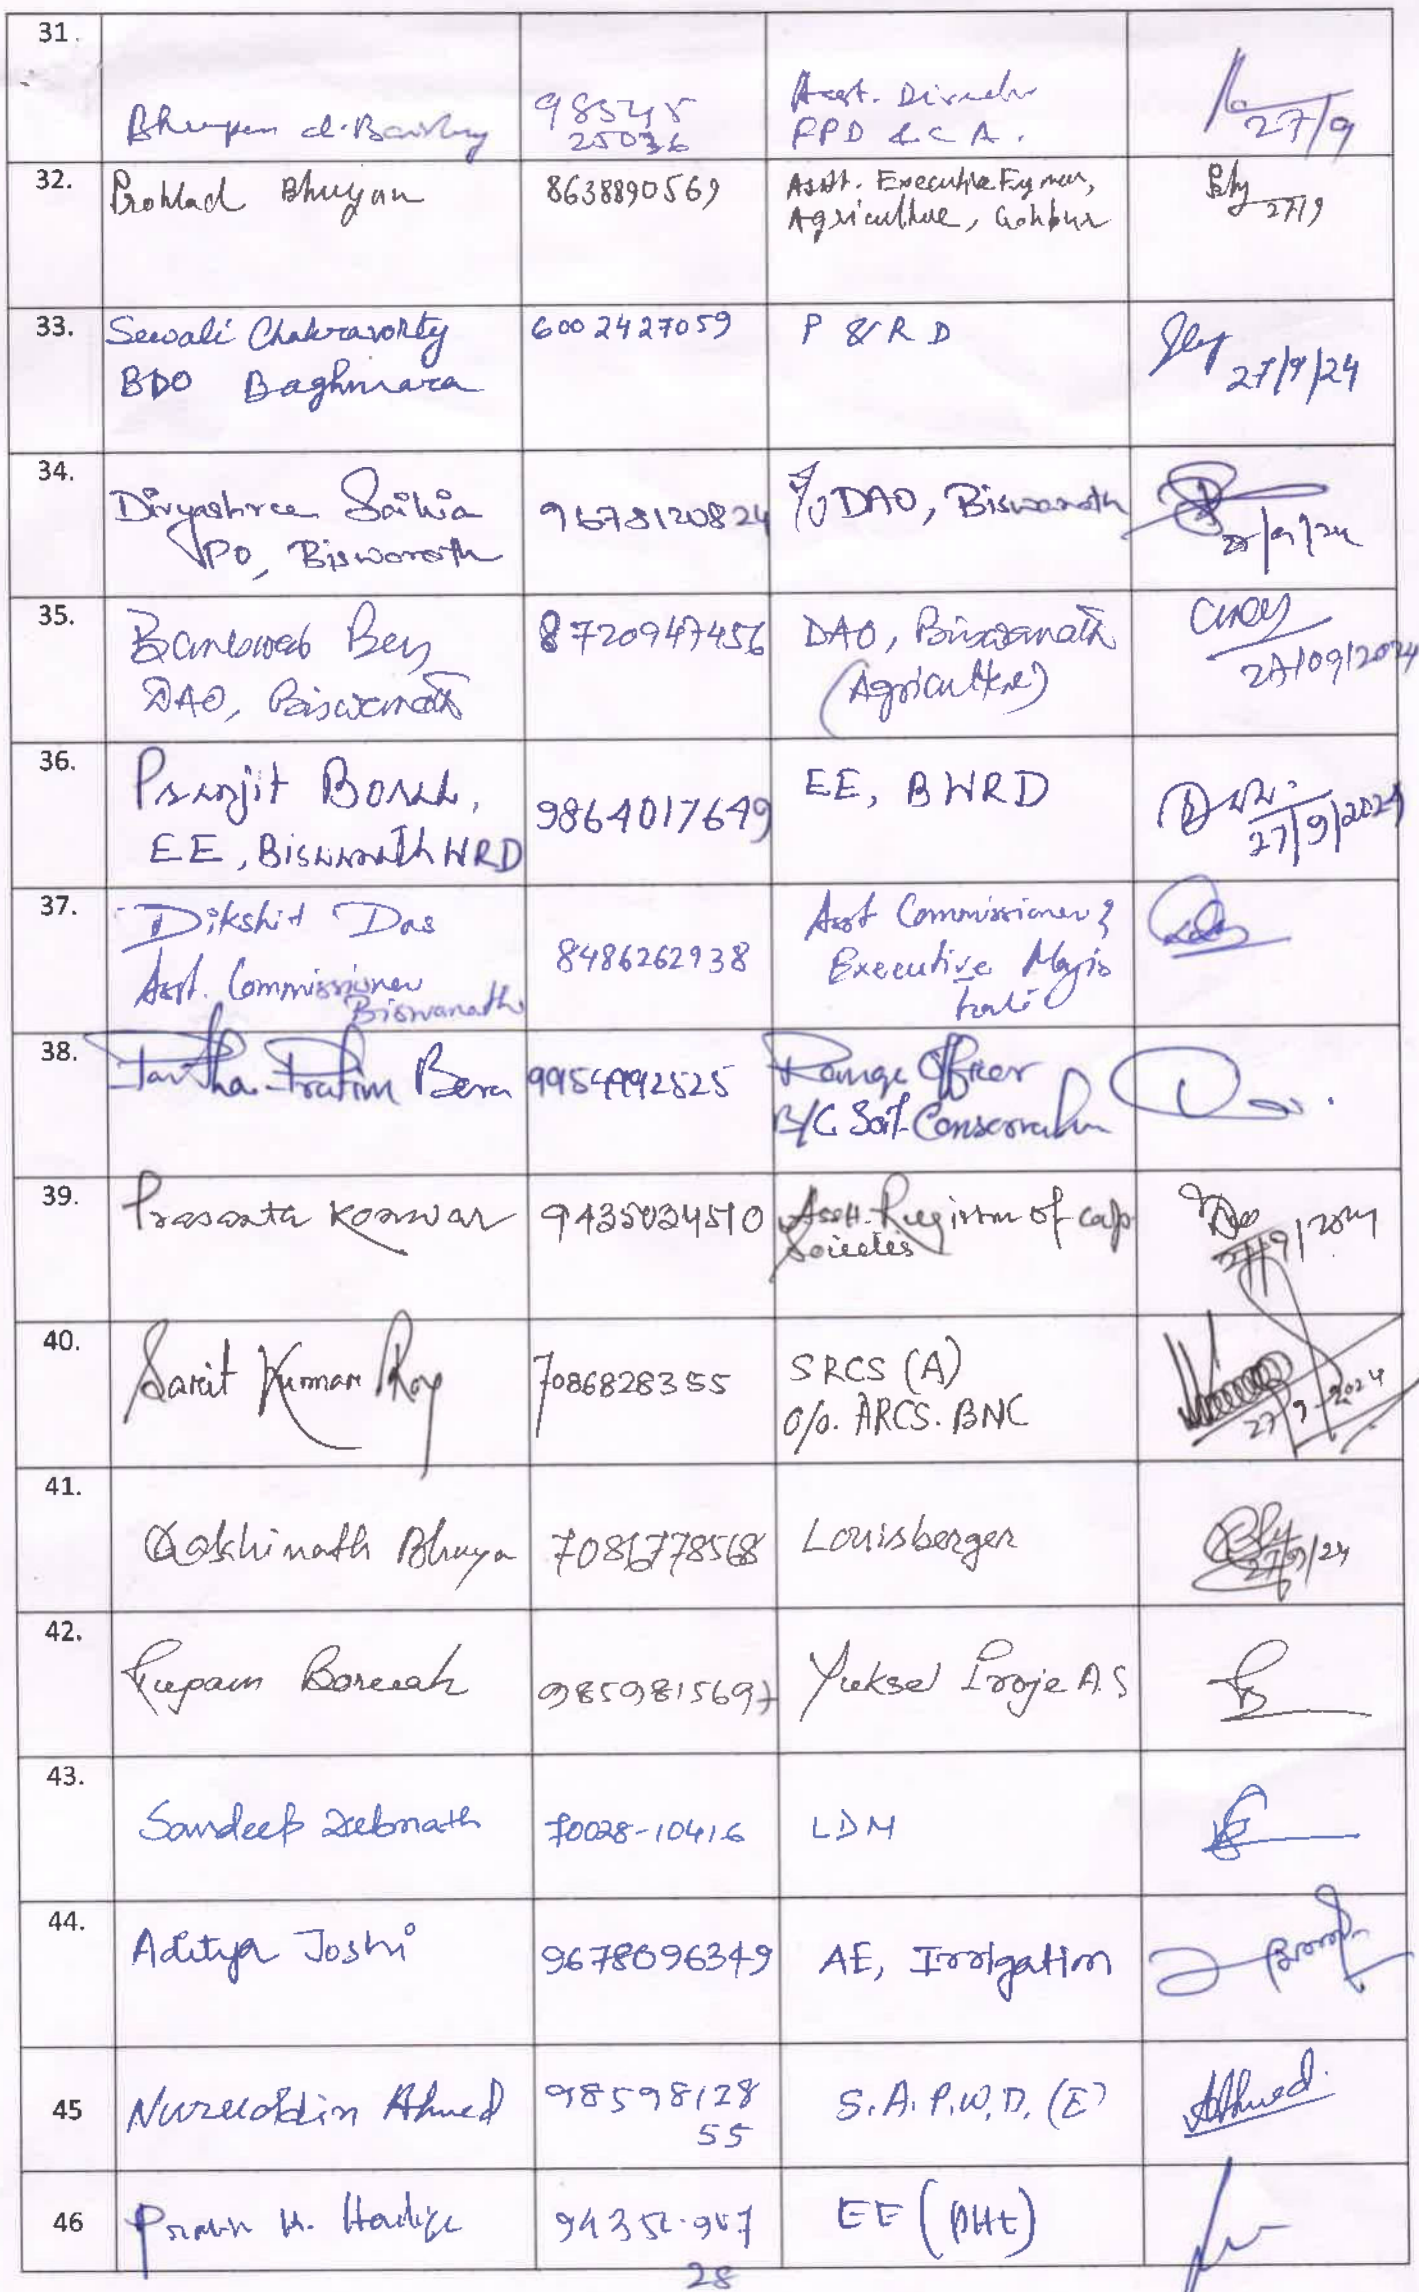 31.
Bhupen ch. Baishy
98545
25036
Asst. Director
FPD & C A.
27/9
32.
Prohlad Bhuyan
8638890569
Asstt. Executive Engineer,
Agriculture, Gohpur
27/9
33.
Sewali Chakravorty
BDO Baghmara
6002427059
P & R D
27/9/24
34.
Divyashree Saikia
PO, Biswanath
9678120824
O/o DAO, Biswanath
35.
Bey
DAO, Biswanath
8720947456
DAO, Biswanath
(Agriculture)
27/09/2024
36.
Pranjit Borah,
EE, Biswanath WRD
9864017649
EE, BWRD
27/9/2024
37.
Dikshit Das
Asst. Commissioner
Biswanath
8486262938
Asst Commissioner &
Executive Magis
trate
38.
Partha Pratim Bora
9954992525
Range Officer
B/C Soil Conservation
39.
Prasanta Konwar
9435034510
Asstt. Registrar of cop
Societies
27/9/2024
40.
Sarit Kumar Roy
7086828355
SRCS (A)
O/o. ARCS. BNC
27-9-2024
41.
Bhuya
7086778568
Louisberger
27/9/24
42.
Rupam Boruah
9859815697
Yuksel Proje A.S
43.
Sandeep Debnath
70028-10416
LDM
44.
Aditya Joshi
9678096349
AE, Irrigation
45
Nuruddin Ahmed
98598128
55
S.A. P.W.D. (E)
Ahmed.
46
H.
EE (
28